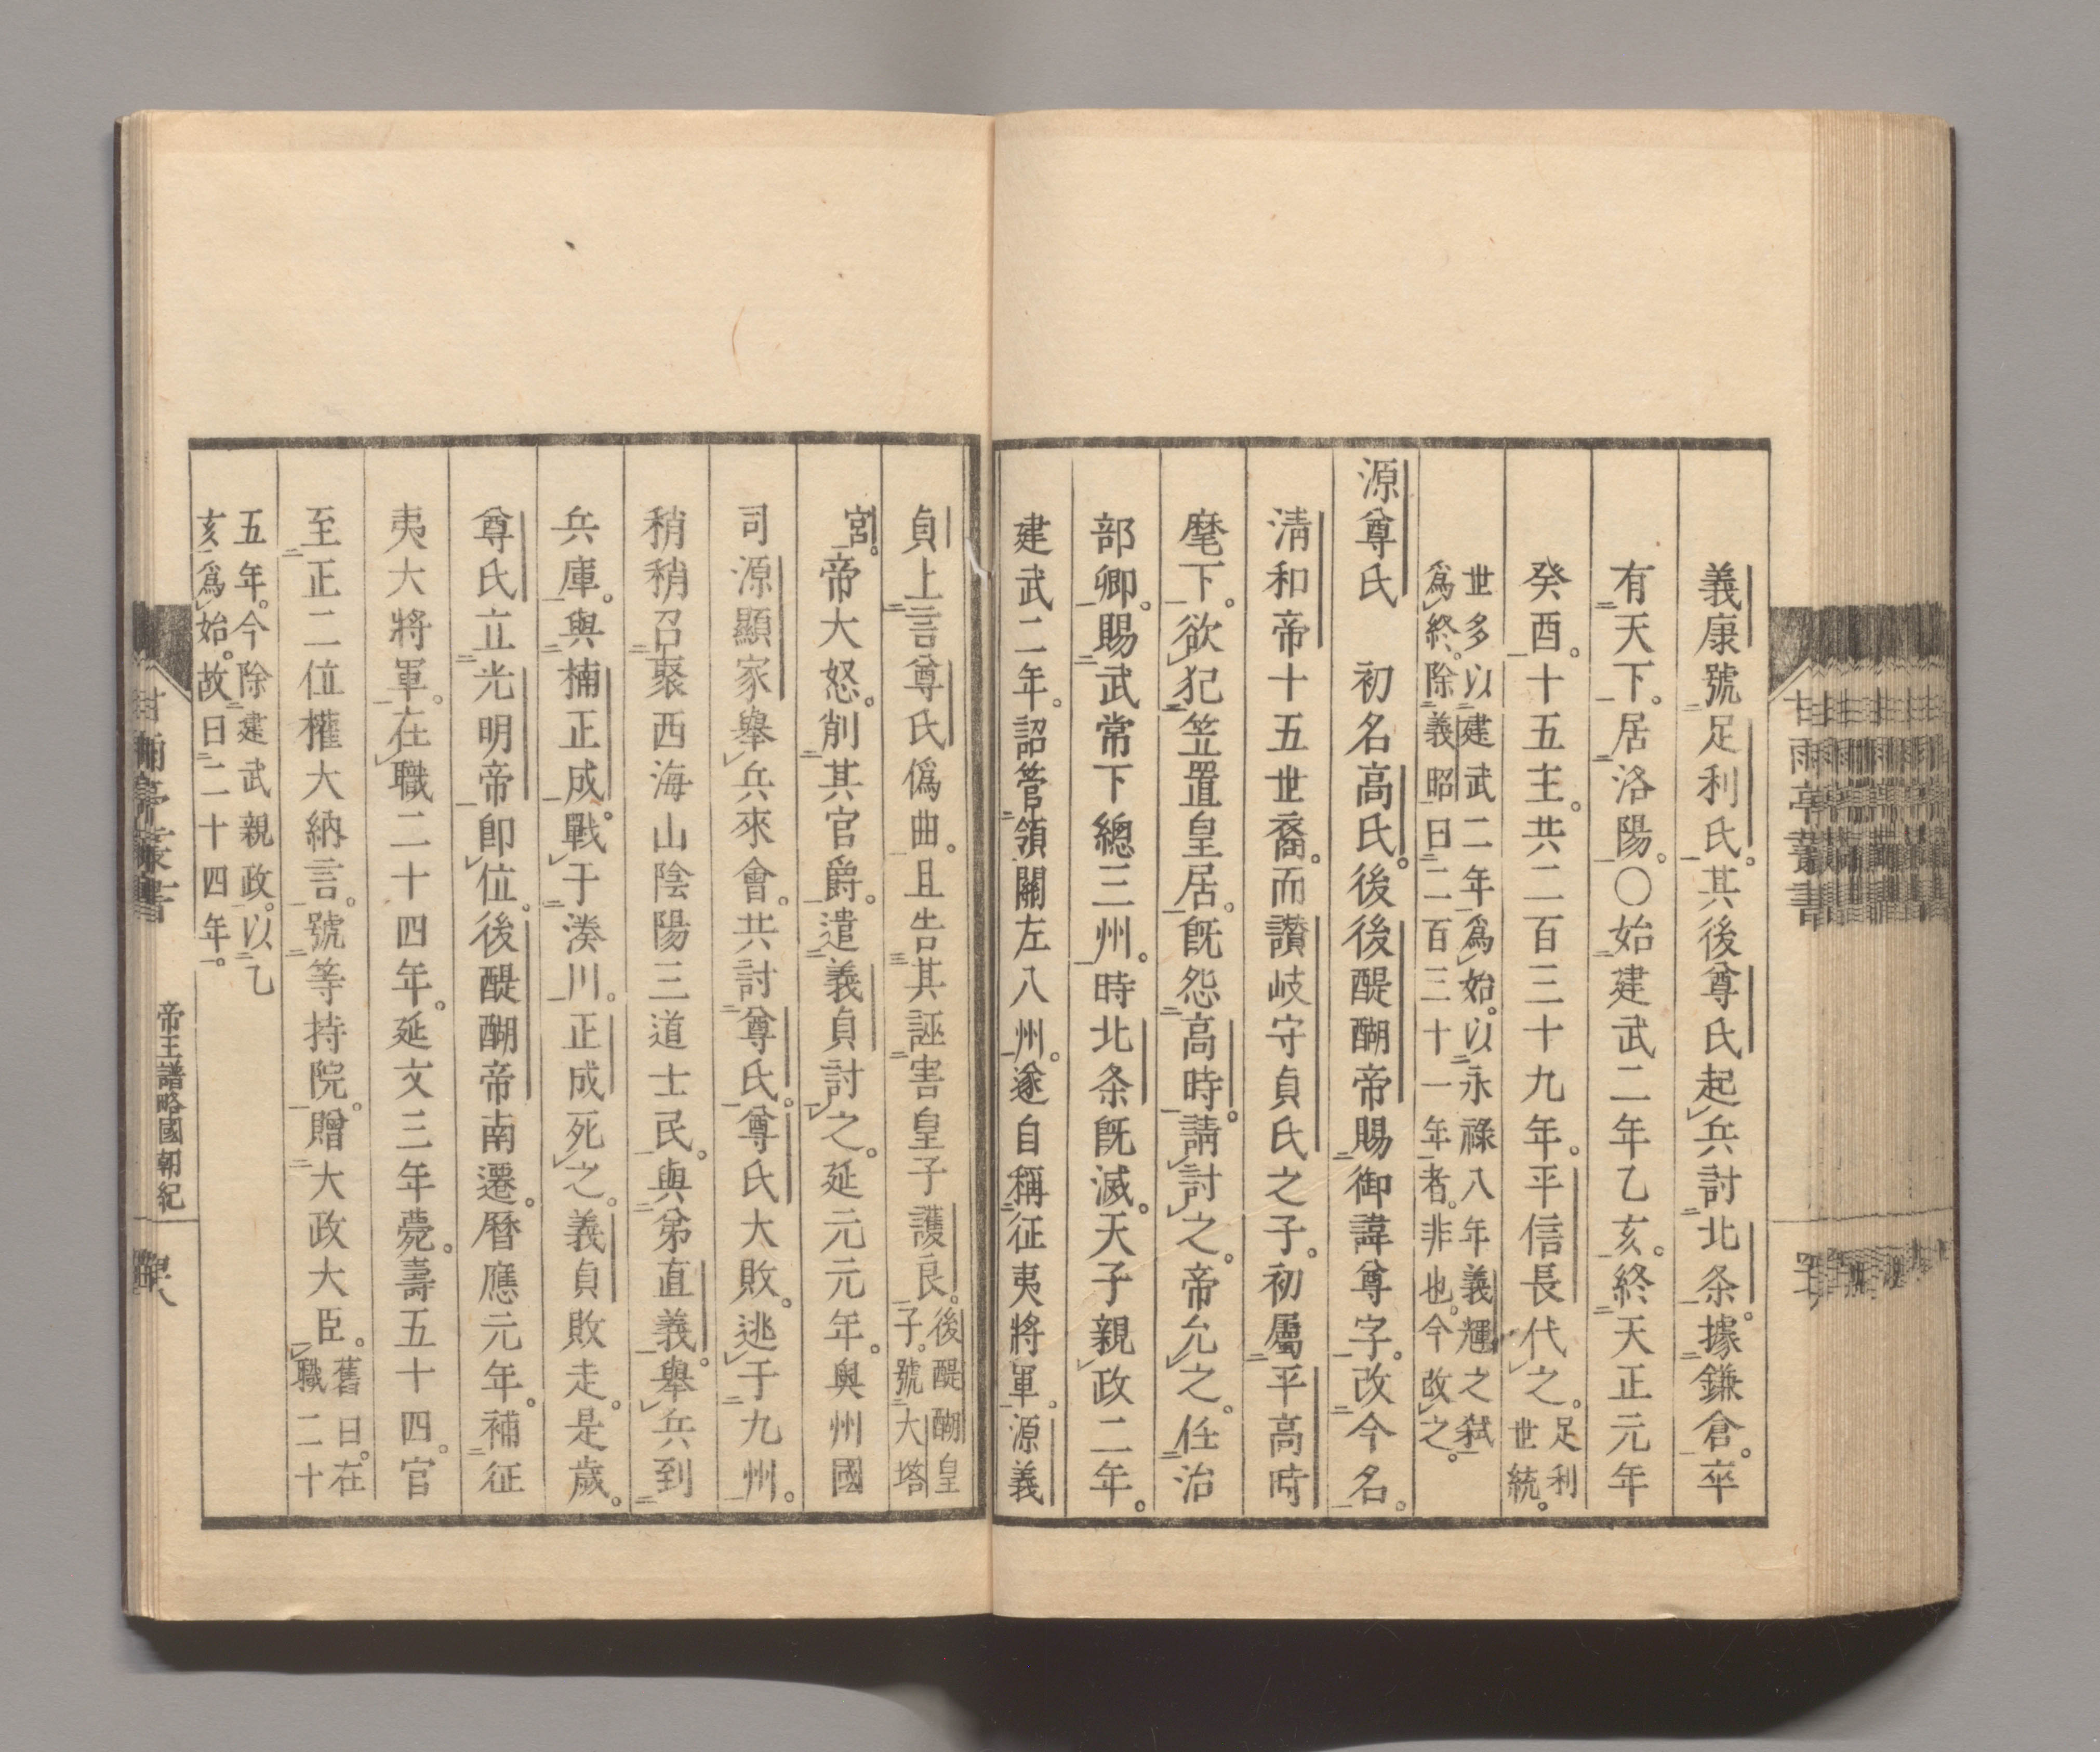 義康號足利氏。其後尊氏起兵討北条。據鎌倉。卒
有天下。居洛陽。〇始建武二年乙亥。終天正元年
癸酉。十五主。共二百三十九年。平信長代之。足利
世統。
世多以建武二年爲始。以永祿八年義輝之弒
爲終。除義昭曰二百三十一年者。非也。今改之。
源尊氏　初名高氏。後後醍醐帝賜御諱尊字。改今名。
淸和帝十五世裔。而讚岐守貞氏之子。初屬平高時
麾下。欲犯笠置皇居。旣怨高時。請討之。帝允之。任治
部卿。賜武常下總三州。時北条旣滅。天子親政二年。
建武二年。詔管領關左八州。遂自稱征夷將軍。源義
貞上言尊氏僞曲。且告其誣害皇子護良。後醍醐皇
子。號大塔
宮。帝大怒。削其官爵。遣義貞討之。延元元年。奥州國
司源顯家舉兵來會。共討尊氏。尊氏大敗。逃于九州。
稍稍召聚西海山陰陽三道士民。與弟直義。舉兵到
兵庫。與楠正成。戰于湊川。正成死之。義貞敗走。是歲。
尊氏立光明帝卽位。後醍醐帝南遷。曆應元年。補征
夷大將軍。在職二十四年。延文三年薨。壽五十四。官
至正二位權大納言。號等持院。贈大政大臣。舊曰。在
職二十
五年。今除建武親政。以乙
亥爲始。故曰二十四年。
帝王譜略國朝紀
甘雨亭叢書